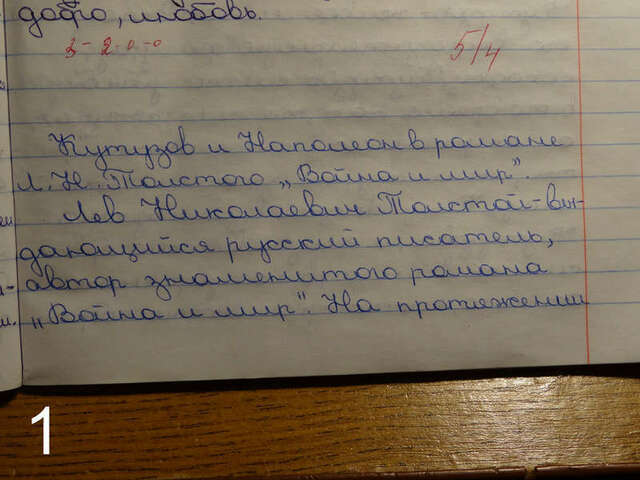 добро, любовь.
3-2-0-0
5/4
Кутузов и Наполеон в романе
Л.Н. Толстого „Война и мир".
Лев Николаевич Толстой-вы-
дающийся русский писатель,
автор знаменитого романа
„Война и мир". На протяжении
1